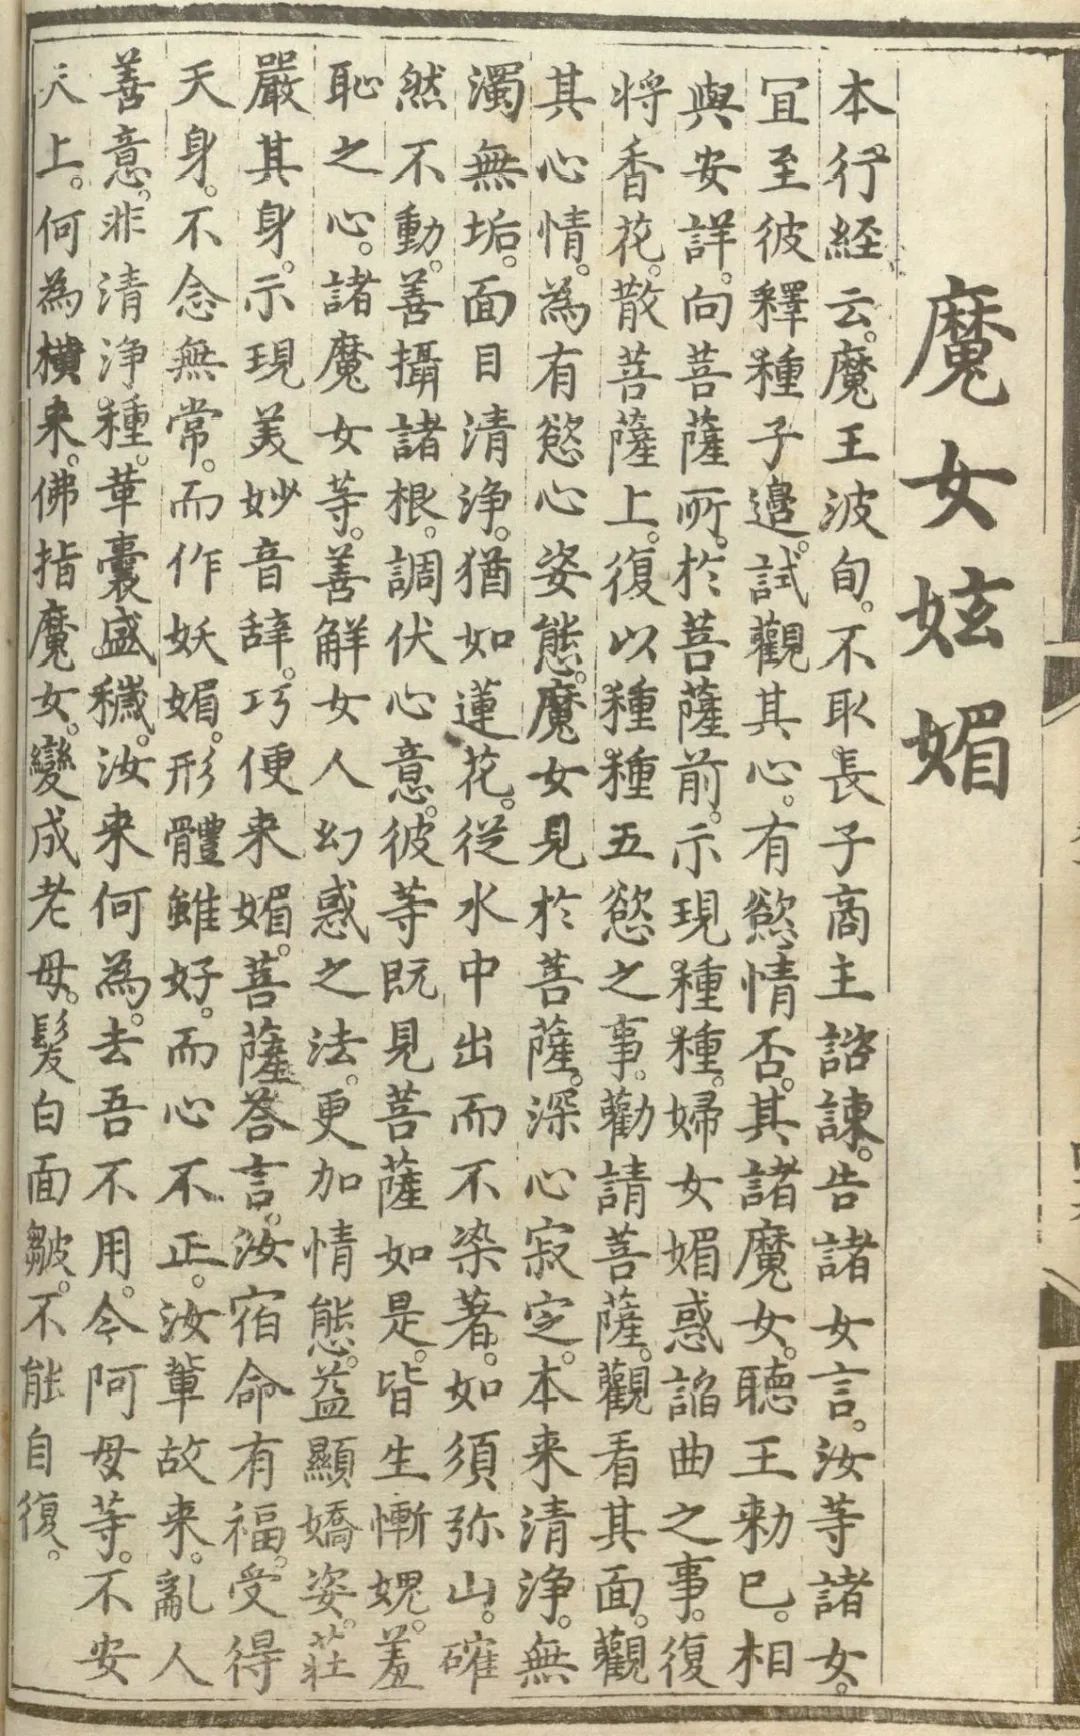 魔女妶媚
本行經云。魔王波旬。不取長子商主諮諫。告諸女言。汝等諸女。
冝至彼釋種子邉。試觀其心。有慾情否。其諸魔女。聽王勑已。相
與安詳。向菩薩所。於菩薩前。示現種種。婦女媚惑諂曲之事。復
將香花。散菩薩上。復以種種五慾之事。勸請菩薩。觀看其面。觀
其心情。為有慾心姿態。魔女見於菩薩。深心寂定。本来清浄。無
濁無垢。面目清浄。猶如蓮花。從水中出而不染著。如須弥山。確
然不動。善攝諸根。調伏心意。彼等既見菩薩如是。皆生慚媿。羞
恥之心。諸魔女等。善解女人幻惑之法。更加情態。益顯嬌姿。莊
嚴其身。示現美妙音辭。巧便来媚。菩薩答言。汝宿命有福。受得
天身。不念無常。而作妖媚。形體雖好。而心不正。汝輩故来。亂人
善意。非清浄種。革囊盛穢。汝来何為。去吾不用。今阿母等。不安
天上。何為横来。佛指魔女。變成老母。髮白面皺。不能自復。